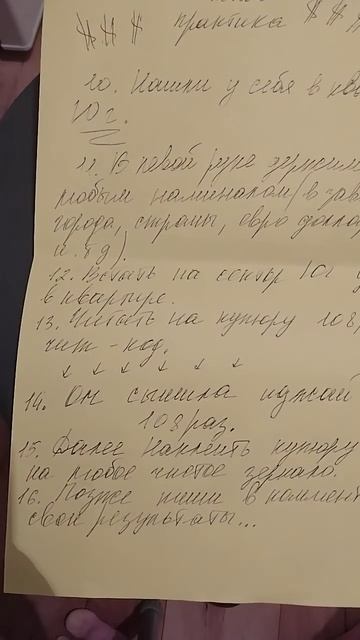 практика
10. Нашли у себя в ква
10 г.
11. В левой руке держим
любым наминалом (в зав
города, страны, евро долла
и. т д).
12. Встать на сектор 10г у
в квартире.
13. Читать на купюру 108
чит-код.
14. Ом
108 раз.
15. Далее наклеить купюру
на любое чистое зеркало.
16. Позже пиши в коммент
свои результаты...